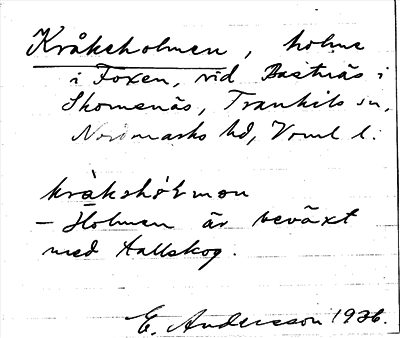 Kråkeholmen, holme
i Foxen, vid Bastnäs i
Skomenäs, Trankils sn,
Nordmarks hd, Vrml l.
kràkshólmon
— Holmen är beväxt
med tallskog.
E. Andersson 1936.